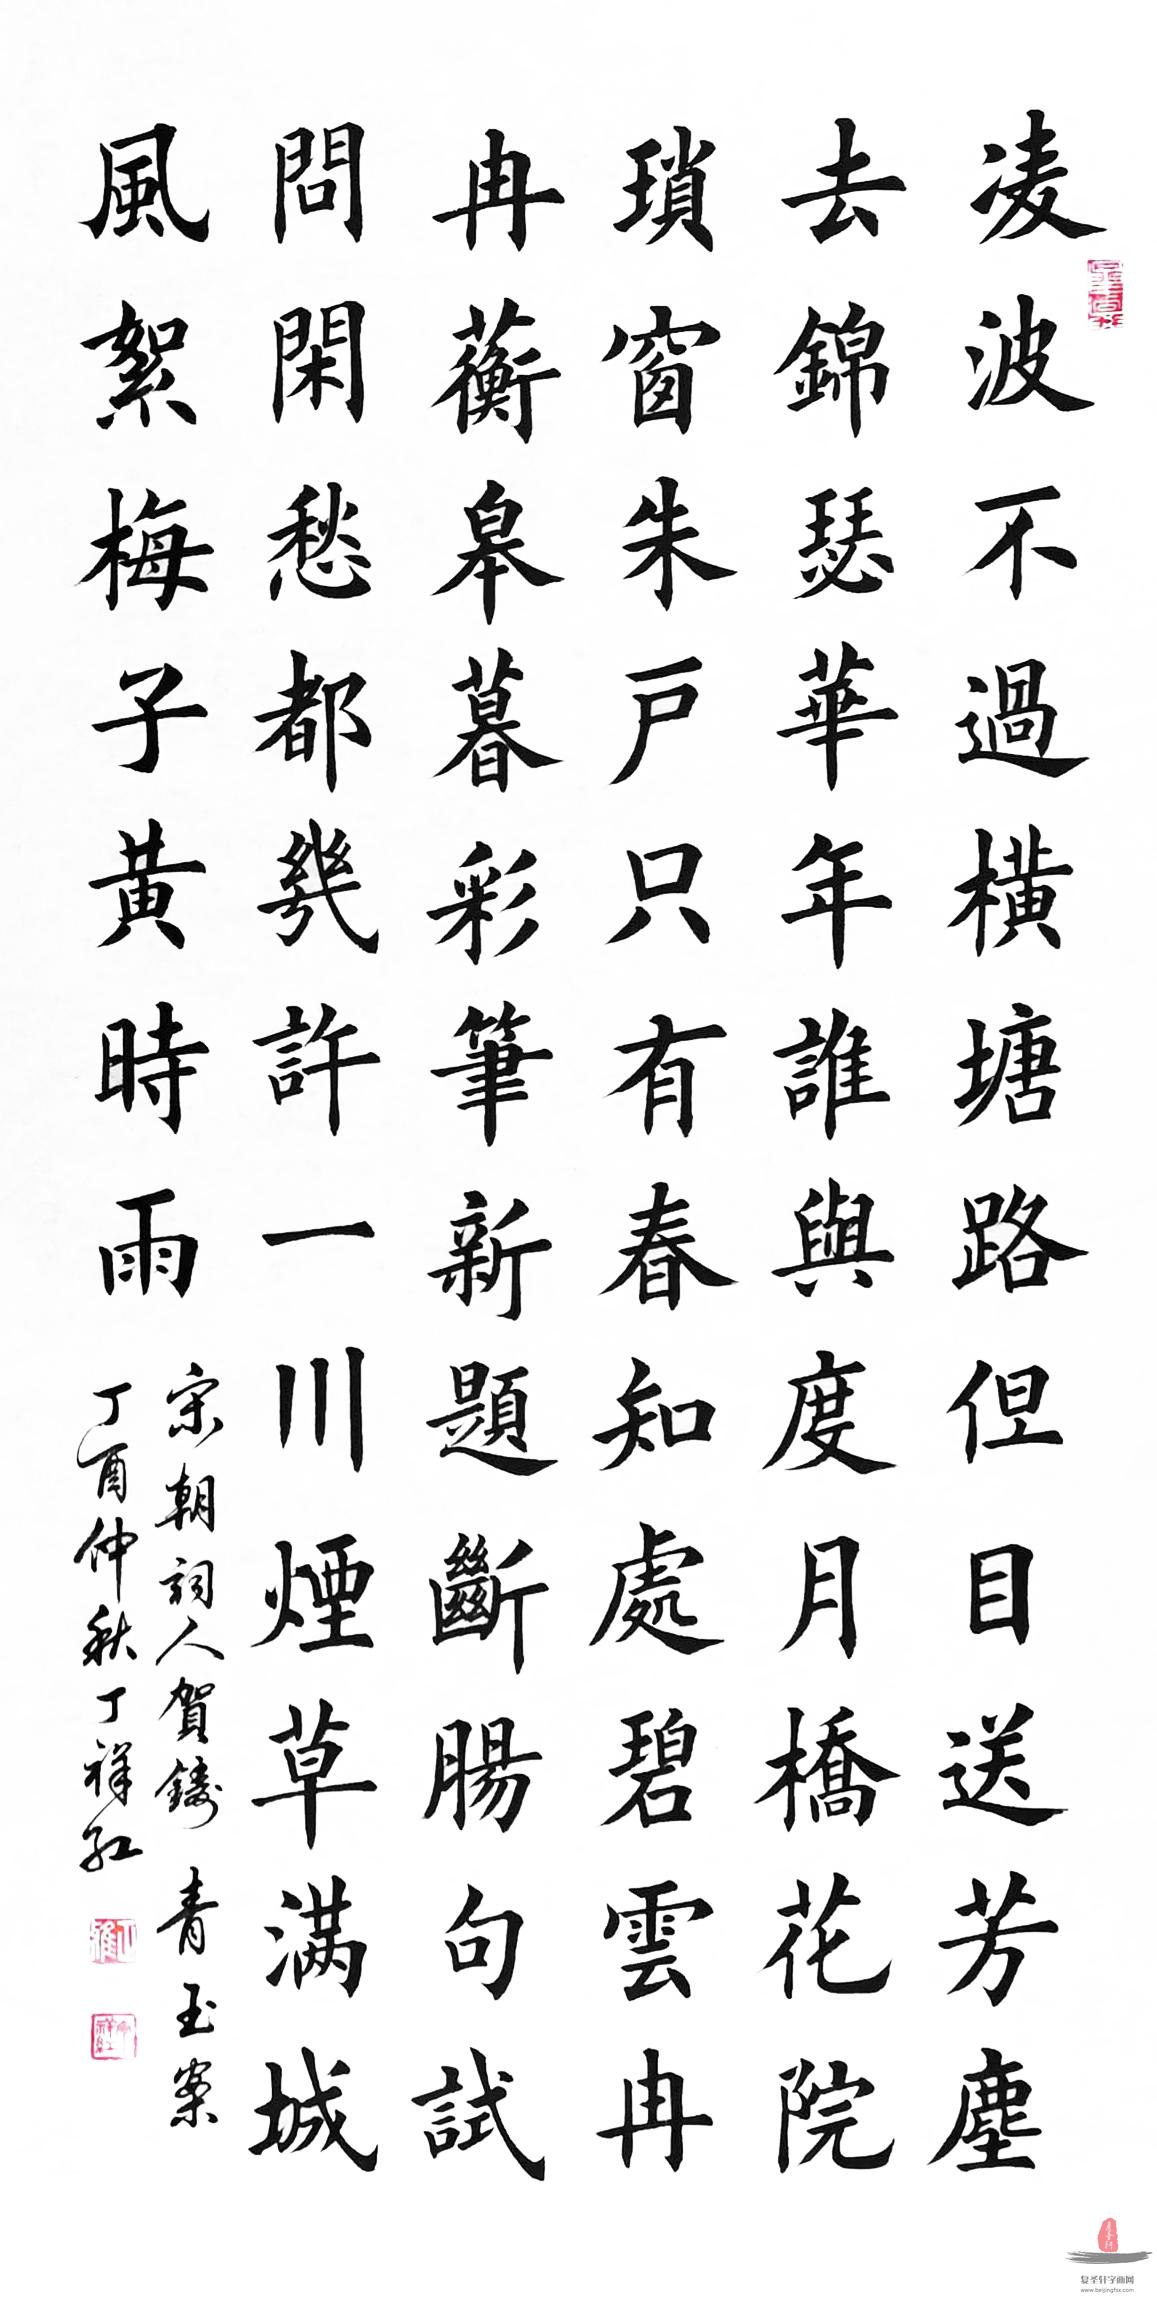 凌波不過橫塘路但目送芳塵
去錦瑟華年誰與度月橋花院
瑣窗朱戸只有春知處碧雲冉
冉蘅皋暮彩筆新題斷腸句試
問閑愁都幾許一川煙草滿城
風絮梅子黃時雨
宋朝詞人賀鑄 青玉案
丁酉仲秋丁祥红
复圣轩字画网
www.beijingfsx.com